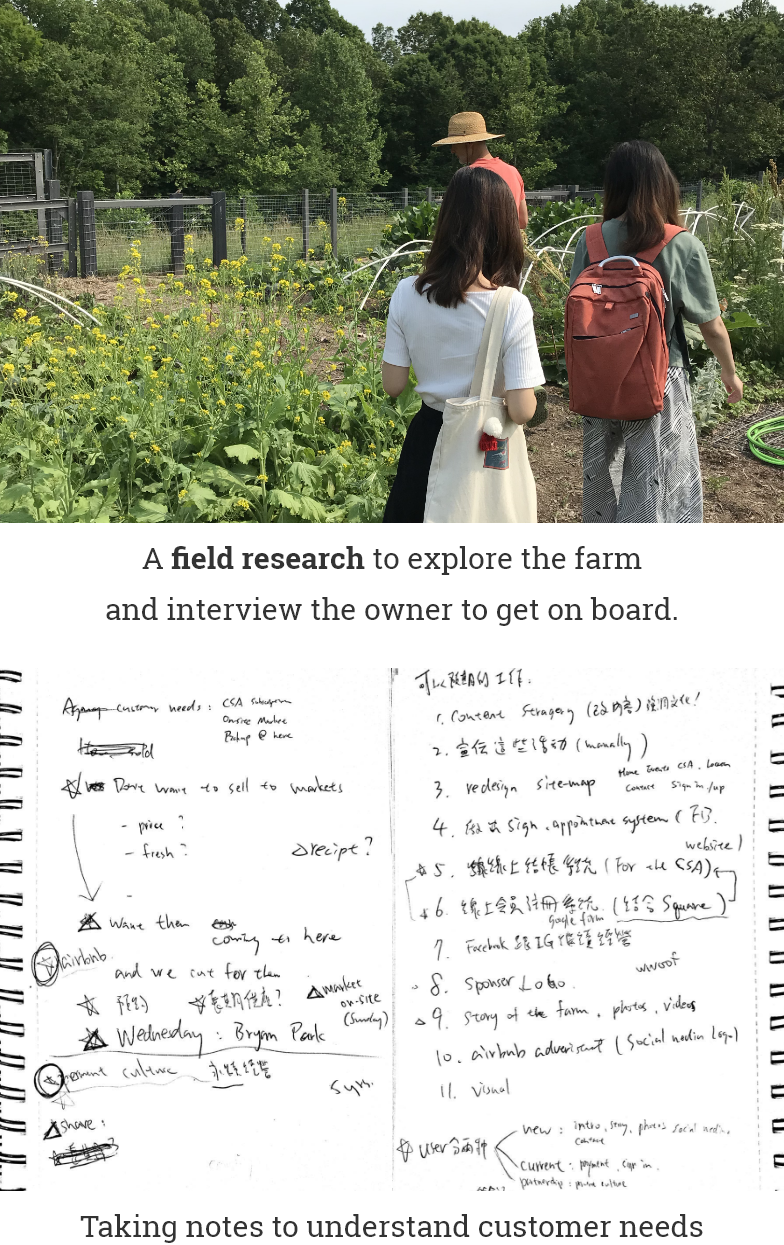 A field research to explore the farm
and interview the owner to get on board.
customer needs : CSA
On-site Market
Pickup @ here
Dont want to sell to markets
- price ?
- fresh ?
recipt ?
-
Want them
coming to here
airbnb.
and we cut for them
預約
market
on-site
(Sunday)
Wednesday : Bryan Park
culture 永續經營
Sym.
share :
可以 的工作.
1. Content Stragery (改內容) 強調文化!
2. 宣传這些活动 (manually)
3. redesign site-map
Home Events CSA. Learn
Contact Sign in/up
4. sign. appointment system ( FB.
website)
5. 線上結帳系統 (For the CSA)
6. 線上会员註冊系統. (結合 Square)
google form
7. Facebook 跟 IG 经营
wwoof
8. Sponser Logo.
9. Story of the farm. photos. videos
10. airbnb (Social media Logo)
11. Visual
User 分兩种
new : intro. story. photos social media.
contact
current : payment. sign in.
partnership :
Taking notes to understand customer needs